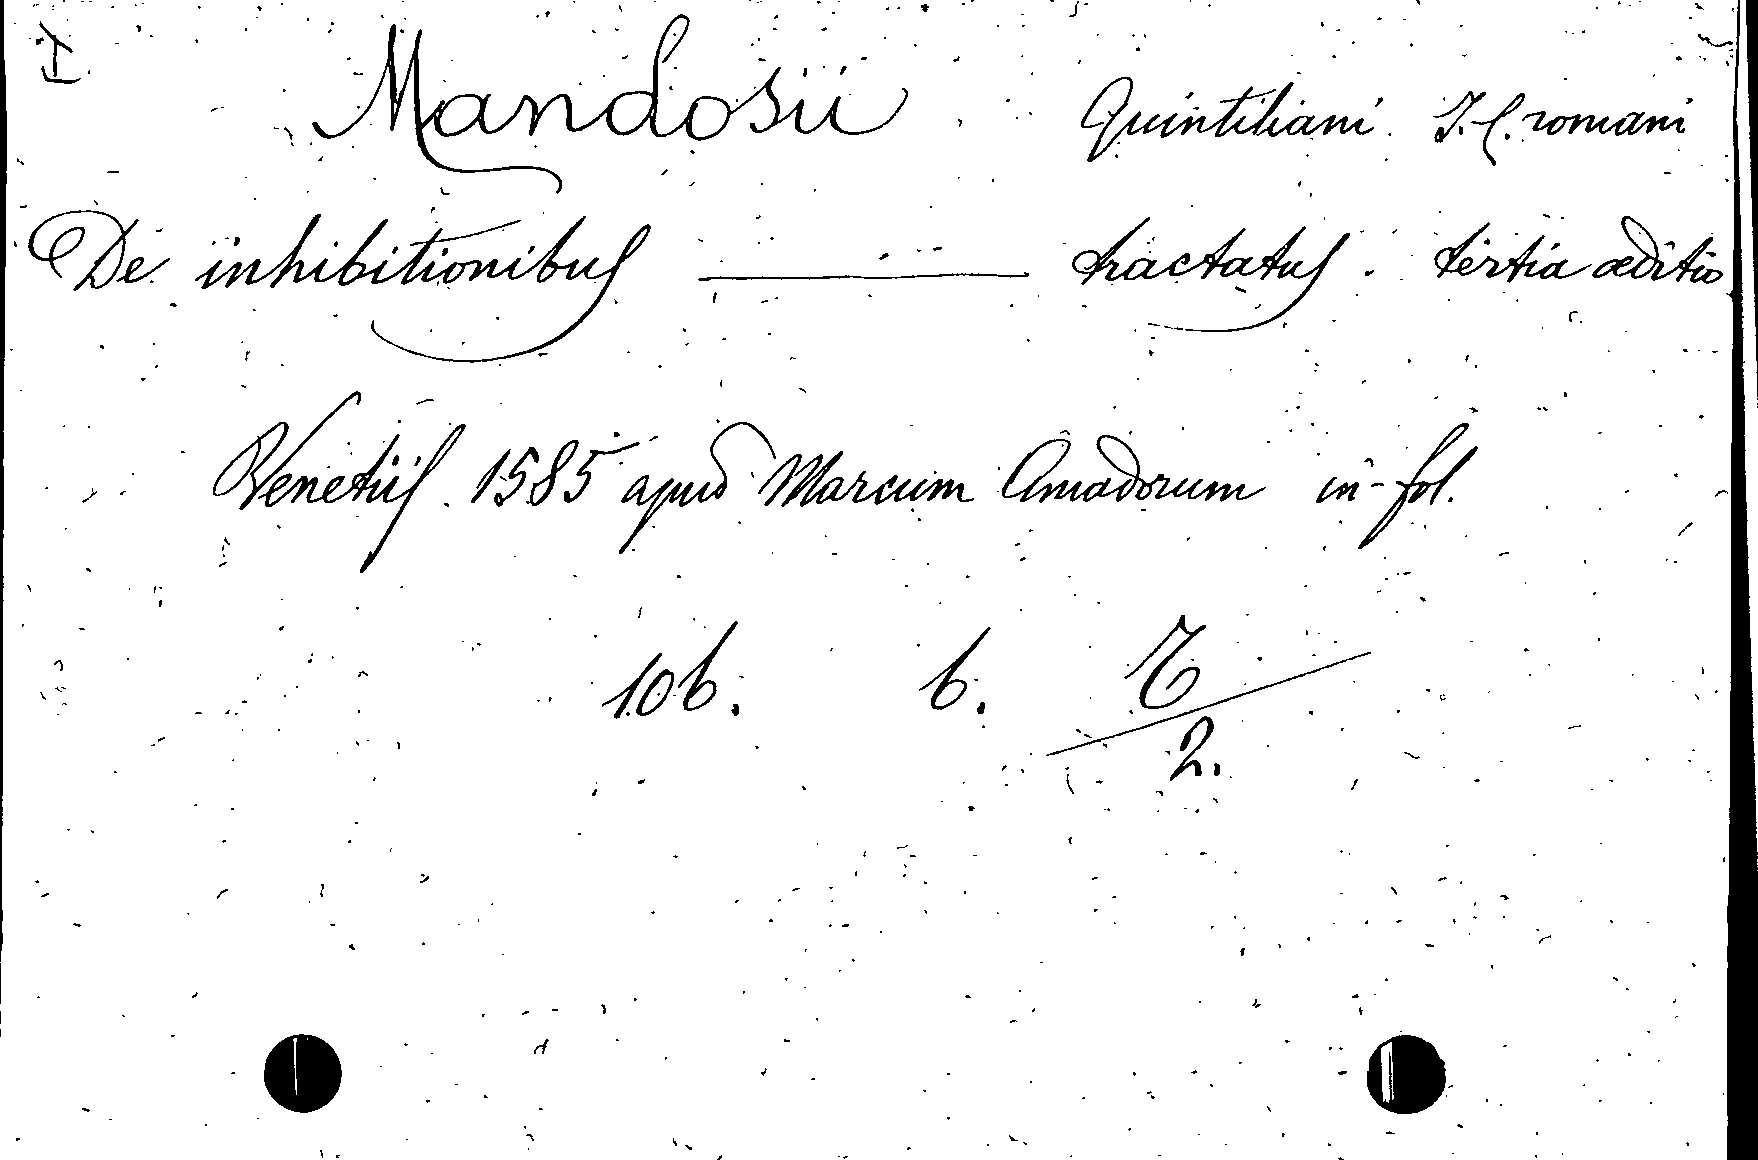 I
Mandosii Quintiliani J.C. romani
De inhibitionibus ——— tractatus. tertia æditio
Venetiis 1585 apud Marcum Amadorum in-fol.
106. 6.
2.